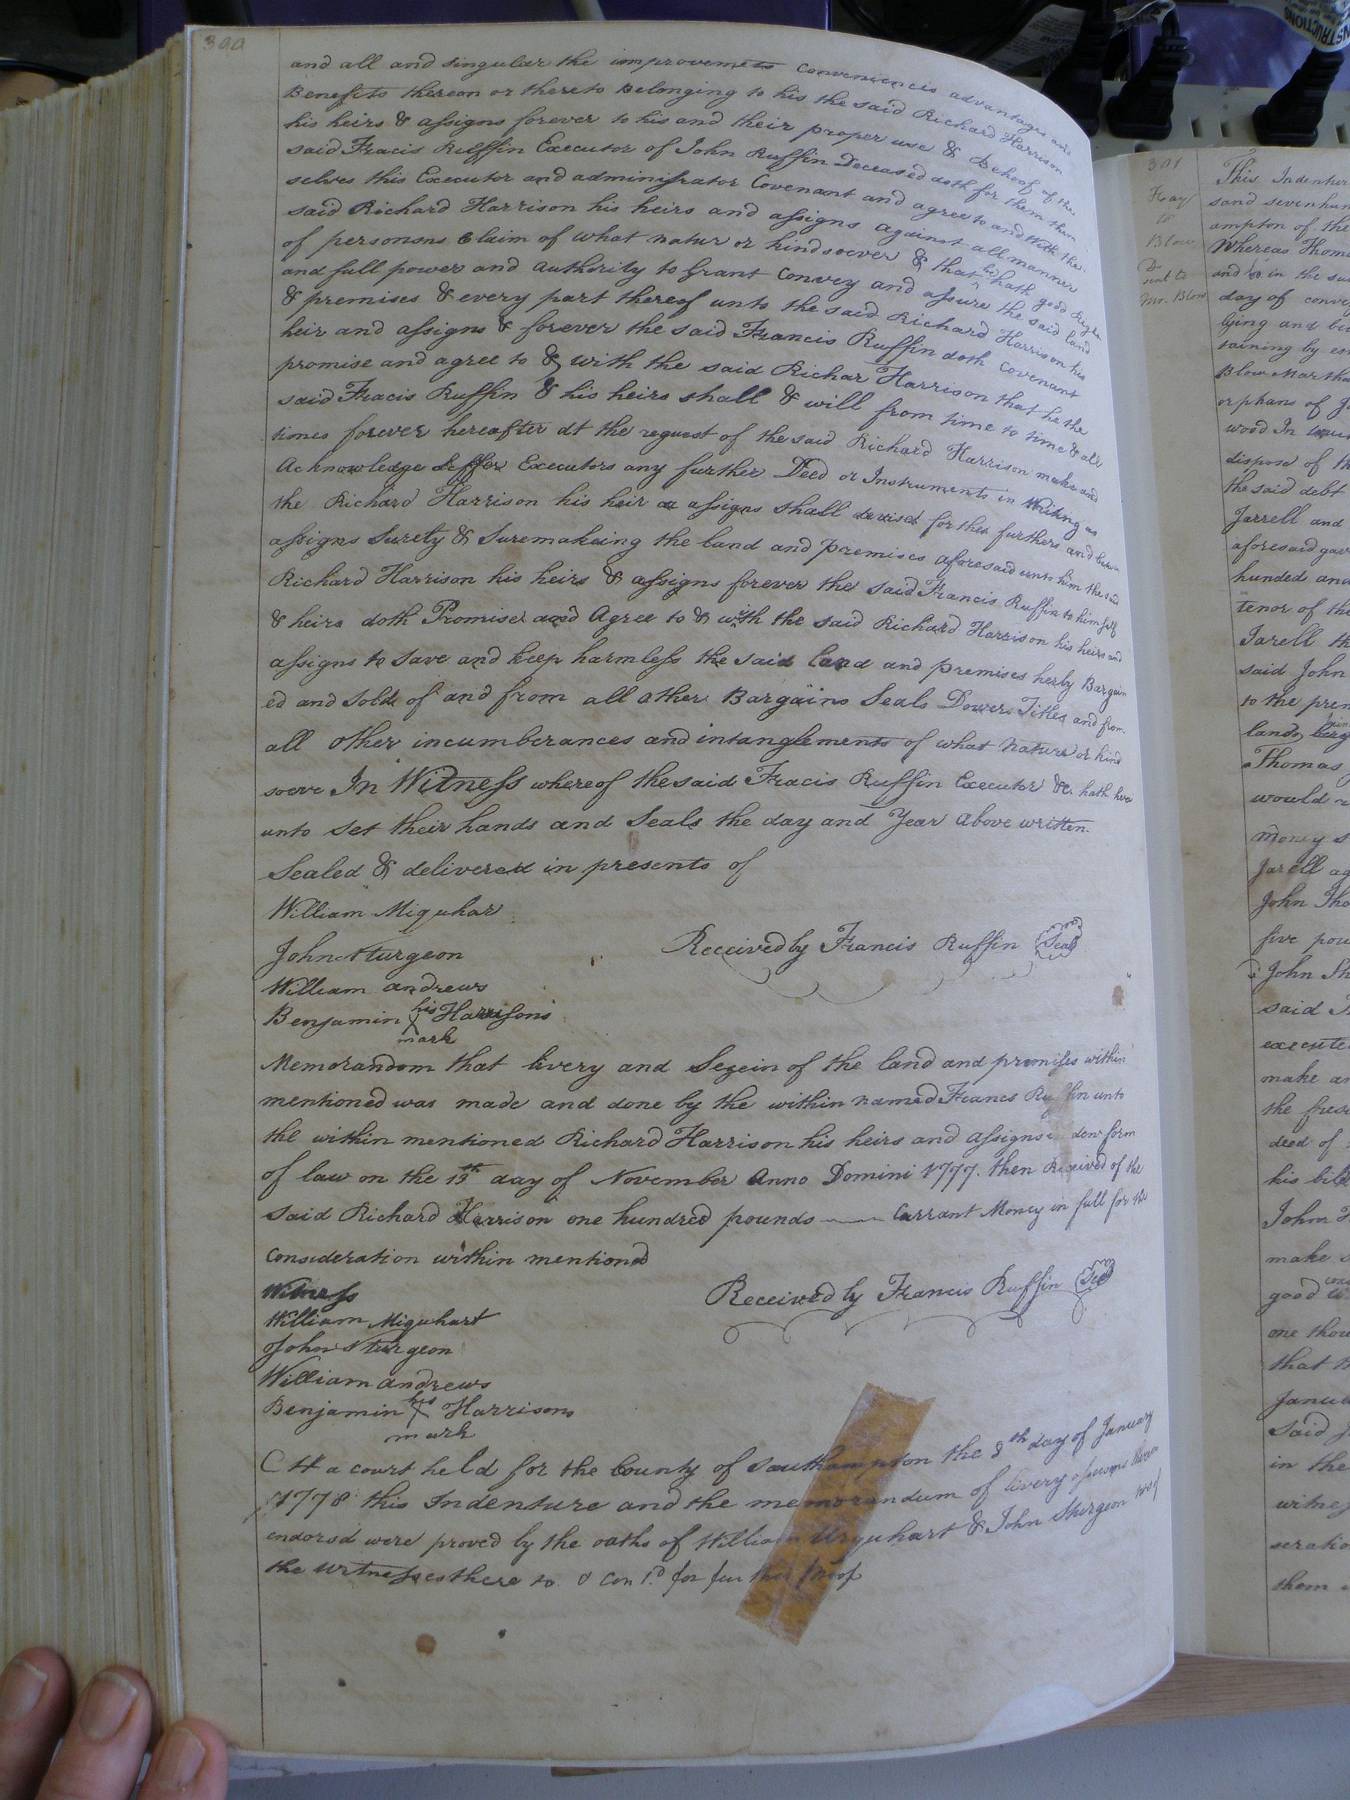 300
and all and singular the improvemets Conveniencies advantages and
Benefits thereon or thereto Belonging to his the said Richard Harrison
his heirs & assigns forever to his and their proper use & Behoof of the
said Fracis Ruffin Executor of John Ruffin Deceased doth for them them
selves this Executor and administrator Covenant and agree to and With the
said Richard Harrison his heirs and assigns against all manner
of personsns Claim of what natur or kindsoever & that he hath good Right
and full power and authority to Grant Convey and assure the said land
& premises & every part thereof unto the said Richard Harrison his
heir and assigns & forever the said Francis Ruffin doth Covenant
promise and agree to & with the said Richar Harrison that he the
said Fracis Ruffin & his heirs shall & will from time to time & all
times forever hereafter at the request of the said Richard Harrison make and
Acknowledge Executors any further Deed or Instruments in Writing as
the Richard Harrison his heir or assigns shall devised for ther furthers and
assigns Surety & Suremakeing the land and premises aforesaid unto him the sd
Richard Harrison his heirs & assigns forever the said Francis Ruffin to himself
& heirs doth Promised and Agree to & with the said Richard Harrison his heirs and
assigns to Save and keep harmless the said land and premises herby Bargain
ed and Sold of and from all other Bargains Seals Dowers Titles and from
all other incumberances and intanglements of what nature or kind
soeve In Witness whereof the said Fracis Ruffin Executor &c hath here
unto set their hands and Seals the day and Year above written
Sealed & delivered in presents of
William Miquhar
John Sturgeon
Received by Francis Ruffin Seal
William andrews
Benjamin his X mark Harrisons
Memorandom that livery and Sezein of the land and premises within
mentioned was made and done by the within named Frances unto
the within mentioned Richard Harrison his heirs and assigns form
of law on the 13th day of November Anno Domini 1777. then Received of the
said Richard Harrison one hundred pounds Carrant Money in full for the
Consideration within mentioned
Witness
Received by Francis Ruffin Seal
William Miquhart
John Sturgeon
William andrews
Benjamin his X mark Harrisons
Att a court held for the County of Southampton the 8th day of January
1778 this Indenture and the memorandum of livery of
endorsd were proved by the oaths of William Urquhart & John Sturgeon two of
the witnesses there to & Con td for further proof
301
Gray
to
Blow
This Indenture
sand sevenhun
ampton of the
Whereas Thoma
and in the su
day of
lying and be
taining by es
Blow Martha
orphans of
wood In
dispose of th
the said debt
Jarrell and
aforesaid gav
hunded and
tenor of the
Jarell th
said John
to the prem
lands
Thomas
would
money s
Jarell ag
John Tho
five pou
John Th
said
execute
make an
the
deed of
his bil
John
make
good
one thou
that
Janua
Said
in the
witnes
seratio
them